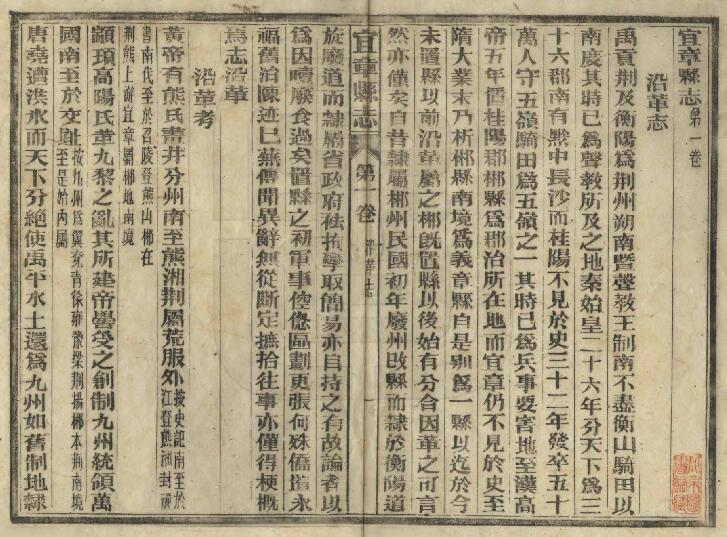 宜章縣志第一卷
沿革志
禹貢荆及衡陽爲荆州朔南暨聲教王制南不盡衡山騎田以
南虔其時已爲聲教所及之地秦始皇二十六年分天下爲三
十六郡南有黔中長沙而桂陽不見於史三十二年發卒五十
萬人守五嶺騎田爲五嶺之一其時已爲兵事要害地至漢高
帝五年置桂陽郡郴縣爲郡治所在地而宜章仍不見於史至
隋大業末乃析郴縣南境爲義章縣自是别爲一縣以迄於今
未置縣以前沿革屬之郴旣置縣以後始有分合因革之可言
然亦僅矣自昔隷屬郴州民國初年廢州改縣而隷於衡陽道
宜章縣志
第一卷
沿革志
旋廢道而隷屬省政府祛拘攣取簡易亦自持之有故論者以
爲因噎廢食過矣置縣之初軍事倥傯區劃更張何殊僑
永
福舊治陳迹已蕪傳聞異辭無從斷定摭拾往事亦僅得梗概
爲志沿革
沿革考
黃帝有熊氏畫井分州南至熊湘荆屬荒服外按史記南至於江登熊湘封禪
書南伐至於召陵登熊山郴在
荆熊上游宜章屬郴地南境
顓頊高陽氏革九黎之亂其所建帝嚳受之創制九州統領萬
國南至於交阯按九州爲冀兗青徐雍豫梁荆揚郴本荆南境至是始內屬
唐堯遭洪水而天下分絶使禹平水土還爲九州如舊制地隷